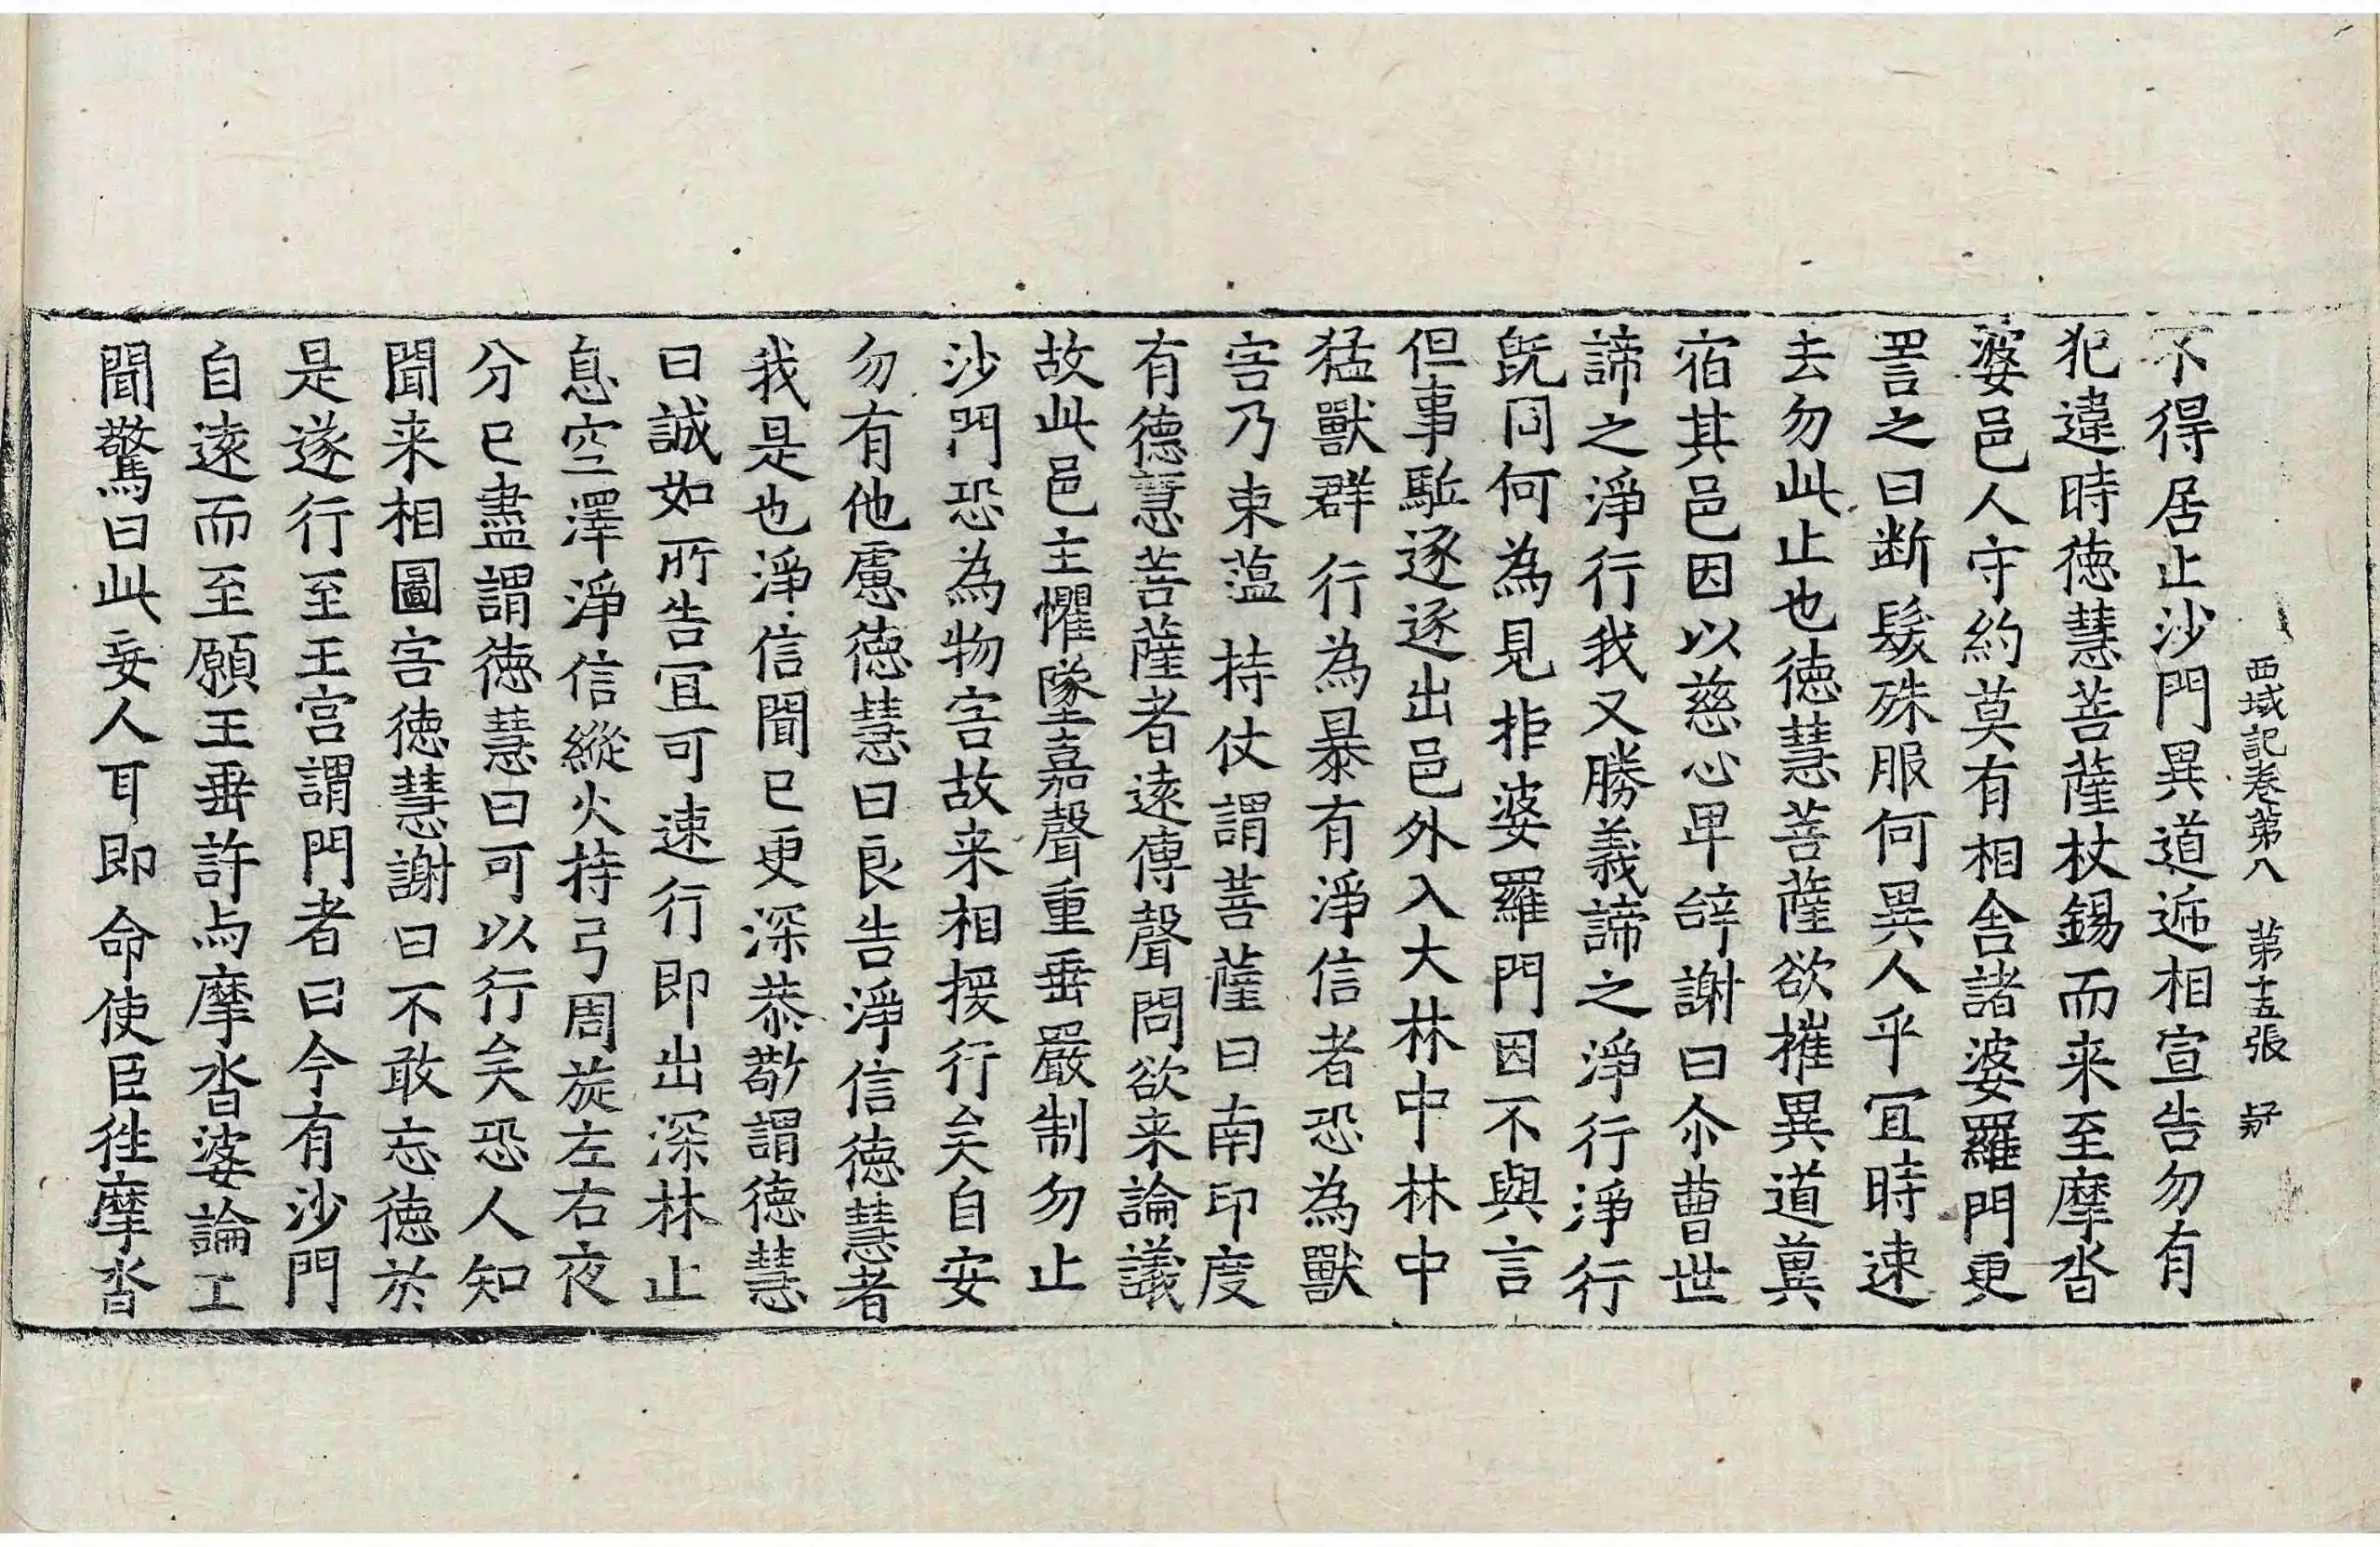 西域記卷第八 第十五張
不得居止沙門異道遞相宣告勿有
犯違時德慧菩薩杖錫而来至摩沓
婆邑人守約莫有相舍諸婆羅門更
詈之曰断髮殊服何異人乎宜時速
去勿此止也德慧菩薩欲摧異道冀
宿其邑因以慈心卑辝謝曰尒曹世
諦之淨行我又勝義諦之淨行淨行
旣同何為見拒婆羅門因不與言
但事駈逐逐出邑外入大林中林中
猛獸群行為暴有淨信者恐為獸
害乃束蕰持仗謂菩薩曰南印度
有德慧菩薩者遠傳聲問欲来論議
故此邑主懼墜嘉聲重垂嚴制勿止
沙門恐為物害故来相援行矣自安
勿有他慮德慧曰良告淨信德慧者
我是也淨信聞已更深恭敬謂德慧
曰誠如所告宜可速行即出深林止
息空澤淨信縱火持弓周旋左右夜
分已盡謂德慧曰可以行矣恐人知
聞来相圖害德慧謝曰不敢忘德於
是遂行至王宮謂門者曰今有沙門
自遠而至願王垂許与摩沓婆論王
聞驚曰此妄人耳即命使臣往摩沓